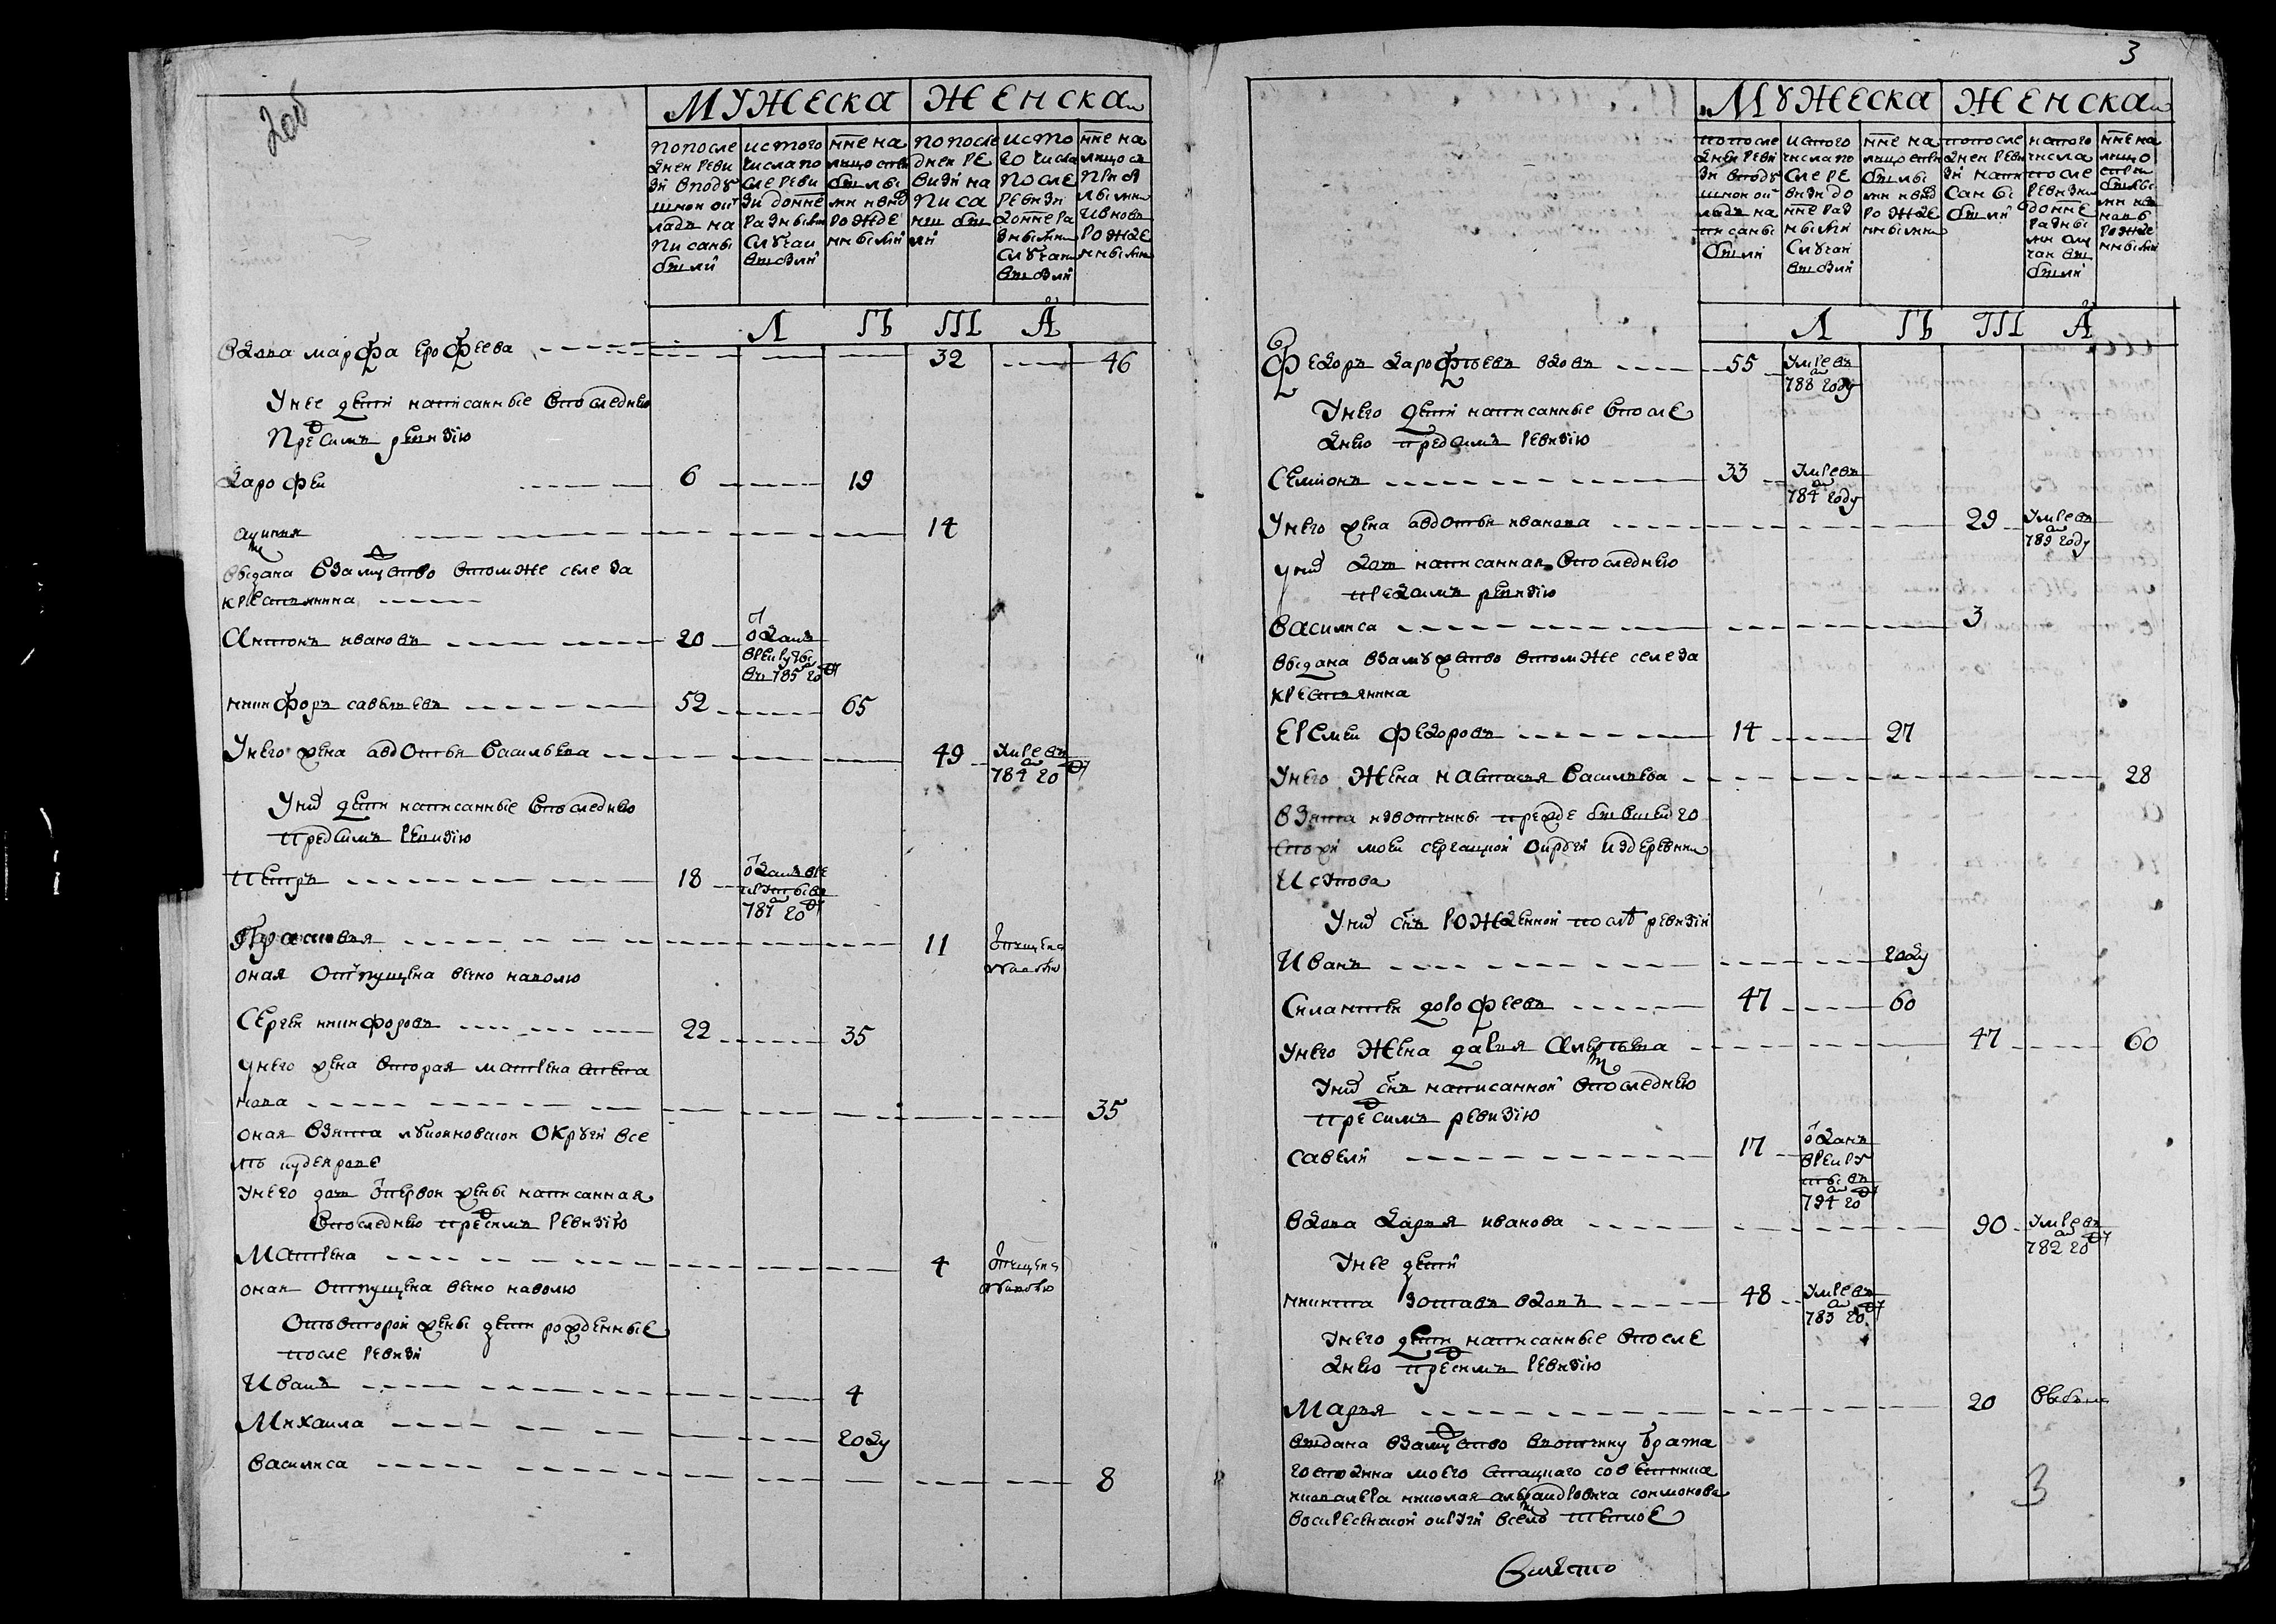 2об
МУЖЕСКА ЖЕНСКА
по последней ревизи в подушной оклад написаны были
ис того числа по сле ревизи до нне разными случаи выбыли
нне на лицо с пр были и вновь рожденными
по последней ревизи написаны были
ис того числа после ревизи до нне разными случаи выбыли
нне на лицо с прибылыми и вновь рожденными
ЛѢТА
вдова марфа ерофеева 32 46
У нее дети написанные в последнею
пред симъ ревизию
дарофеи 6 19
14
выдана в замужство в том же селе за
крестьянина
Антонъ ивановъ 20 отданъ в рекруты въ 785 год
никифоръ савельевъ 52 65
У него жена авдотья васильева 49 умре въ 784 год
У них дети написанные в последнею
пред симъ ревизию
петръ 18 отданъ в рекруты въ 787 год
Прасковья 11 отпущена на волю
оная отпущена вечно на волю
Сергеи никифоровъ 22 35
У него жена вторая матрена
35
оная взята округи в се
ле
у него дочь от первои жены написанная
в последнею пред симъ ревизию
Матрена 4 отпущена на волю
оная отпущена вечно на волю
От второй жены дети рожденные
после ревизи
Иванъ 4
Михаила году
василиса 8
3
МУЖЕСКА ЖЕНСКА
по последней ревизи в подушной оклад написаны были
ис того числа по сле ревизи до нне разными случаи выбыли
нне на лицо с при былыми и вновь рожденными
по последней ревизи написаны были
ис того числа после ревизи до нне разными случаи выбыли
нне на лицо с при былыми и вновь рожденными
ЛѢТА
Федоръ дарофѣевъ вдовъ 55 умре въ 788 году
У него дети написанные в после
днею пред симъ ревизию
Семионъ 33 умре въ 784 году
У него жена авдотья иванова 29 умре въ 789 году
у них дочь написанная в последнею
пред симъ ревизию
василиса 3
выдана в замужство в том же селе за
крестьянина
Еремеи федоровъ 14 27
У него жена настасья васильева 28
взята из вотчины прежде бывшей го
спожи моеи сергацкой округи из деревни
У них снъ рожденной послѣ ревизии
Иванъ году
Силантеи дорофеевъ 47 60
У него жена дарья 47 60
У них снъ написанной в последнею
пред симъ ревизию
савели 17 отданъ в рекруты въ 794 год
вдова дарья иванова 90 умре въ 782 год
У нее дети
никита вдовъ 48 умре въ 783 год
У него дети написанные в после
днею пред симъ ревизию
Марья 20 выбыла
выдана в замужство в вотчину брата
госпдина моего стацкаго советника
и кавалера николая александровича соимонова
округи в село
3
вместо